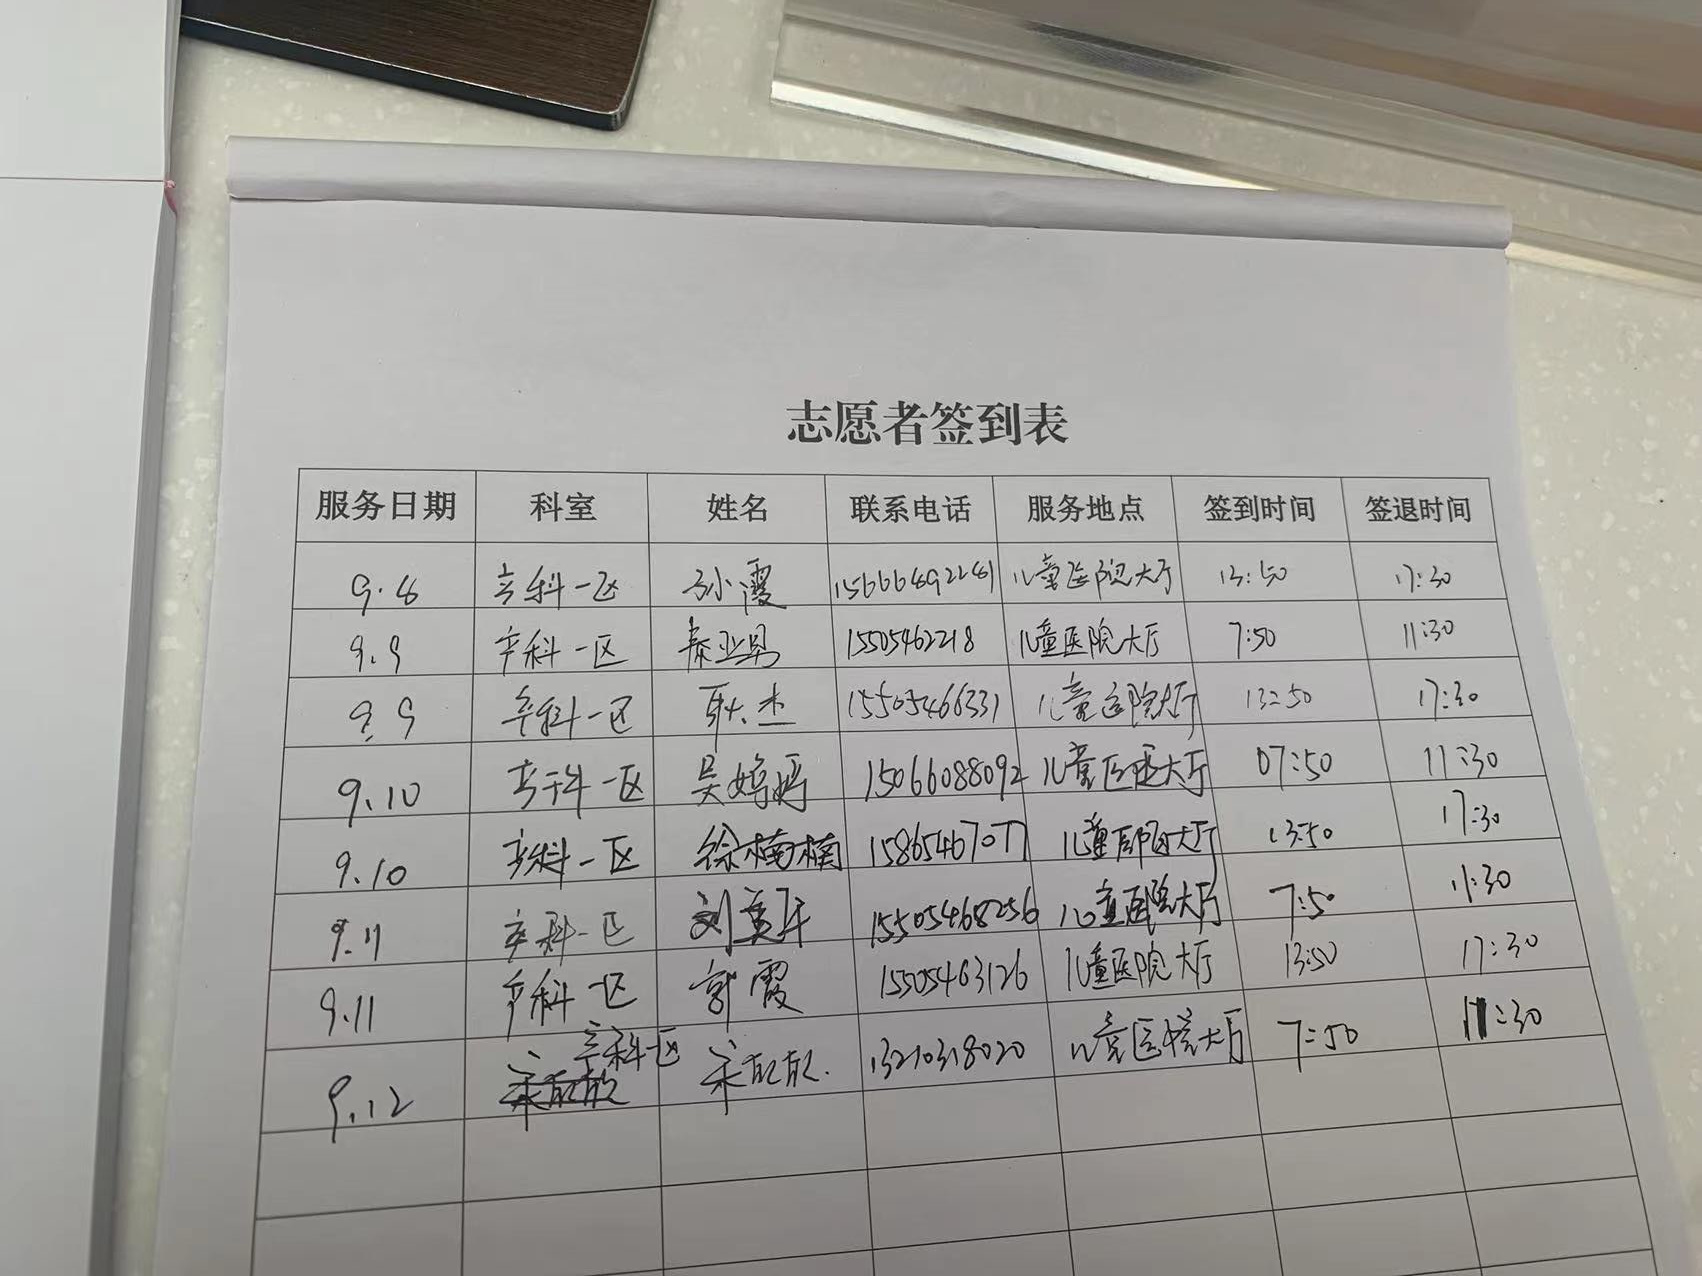 志愿者签到表
服务日期 科室 姓名 联系电话 服务地点 签到时间 签退时间
9.8 产科一区 孙霞 儿童医院大厅 13:50 17:30
9.9 产科一区 秦亚男 15505462218 儿童医院大厅 7:50 11:30
9.9 产科一区 耿杰 15505466331 儿童医院大厅 13:50 17:30
9.10 产科一区 吴婷婷 15066088092 儿童医院大厅 07:50 11:30
9.10 产科一区 徐楠楠 15865467077 儿童医院大厅 13:50 17:30
9.11 产科一区 刘 15505468256 儿童医院大厅 7:50 11:30
9.11 产科一区 郭霞 15505463126 儿童医院大厅 13:50 17:30
9.12 产科一区 13210318020 儿童医院大厅 7:50 11:30